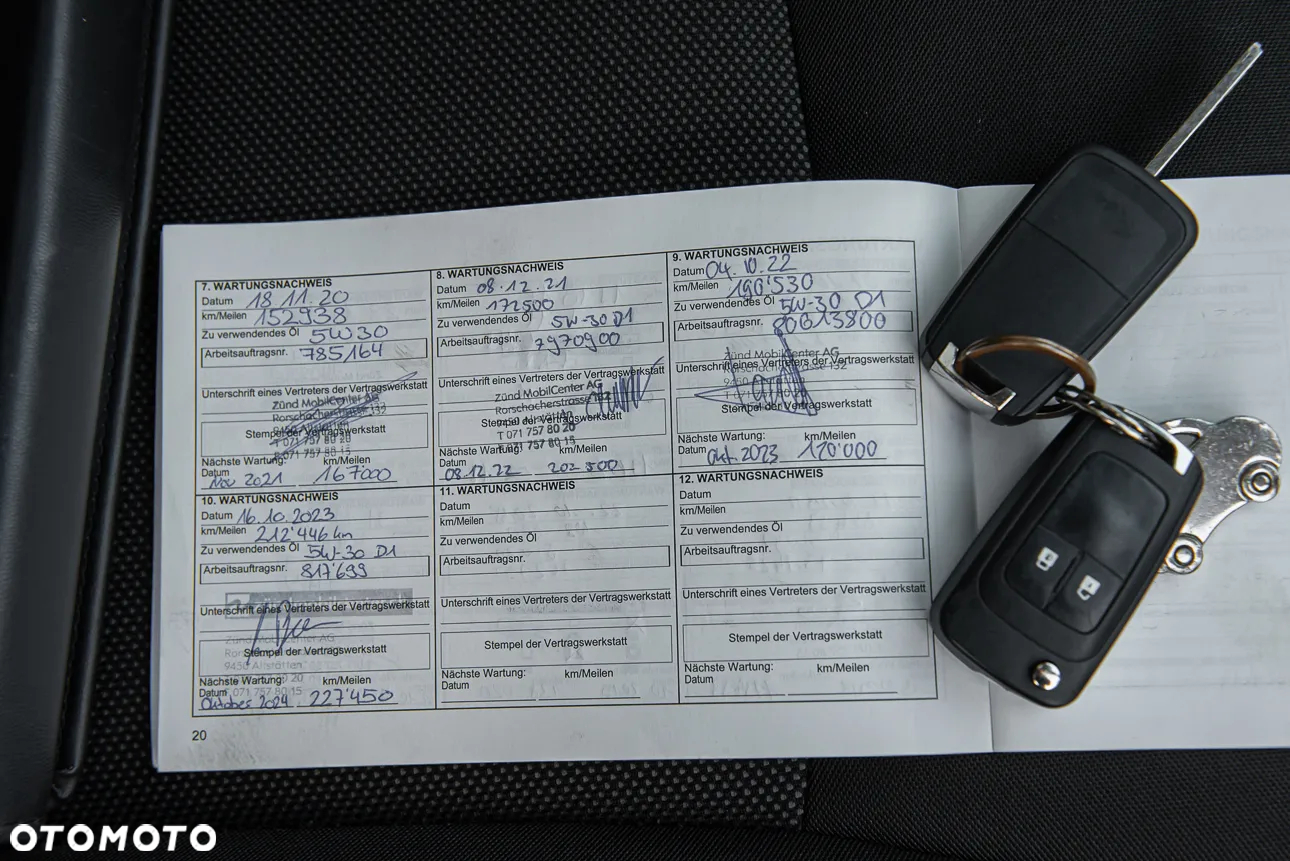 7. WARTUNGSNACHWEIS
Datum 18.11.20
km/Meilen 152938
Zu verwendendes Öl 5W30
Arbeitsauftragsnr. 785164
Unterschrift eines Vertreters der Vertragswerkstatt
Zünd MobilCenter AG
Rorschacherstrasse 132
9450 Altstätten
Stempel der Vertragswerkstatt
T 071 757 80 20
F 071 757 80 15
Nächste Wartung: km/Meilen
Datum
Nov 2021 167000
8. WARTUNGSNACHWEIS
Datum 08.12.21
km/Meilen 172500
Zu verwendendes Öl 5W-30 D1
Arbeitsauftragsnr. 7970900
Unterschrift eines Vertreters der Vertragswerkstatt
Zünd MobilCenter AG
Rorschacherstrasse 132
Stempel der Vertragswerkstatt
T 071 757 80 20
F 071 757 80 15
Nächste Wartung: km/Meilen
Datum
08.12.22 202 500
9. WARTUNGSNACHWEIS
Datum 04.10.22
km/Meilen 190'530
Zu verwendendes Öl 5W-30 D1
Arbeitsauftragsnr. 80613800
Zünd MobilCenter AG
Rorschacherstrasse 132
Unterschrift eines Vertreters der Vertragswerkstatt
Stempel der Vertragswerkstatt
Nächste Wartung: km/Meilen
Datum Okt. 2023 120'000
10. WARTUNGSNACHWEIS
Datum 16.10.2023
km/Meilen 212'446 km
Zu verwendendes Öl 5W-30 D1
Arbeitsauftragsnr. 817'699
Unterschrift eines Vertreters der Vertragswerkstatt
Zünd MobilCenter AG
Stempel der Vertragswerkstatt
9450 Altstätten
Nächste Wartung: km/Meilen
Datum 071 757 80 15
Oktober 2024 227'450
11. WARTUNGSNACHWEIS
Datum
km/Meilen
Zu verwendendes Öl
Arbeitsauftragsnr.
Unterschrift eines Vertreters der Vertragswerkstatt
Stempel der Vertragswerkstatt
Nächste Wartung: km/Meilen
Datum
12. WARTUNGSNACHWEIS
Datum
km/Meilen
Zu verwendendes Öl
Arbeitsauftragsnr.
Unterschrift eines Vertreters der Vertragswerkstatt
Stempel der Vertragswerkstatt
Nächste Wartung: km/Meilen
Datum
20
OTOMOTO